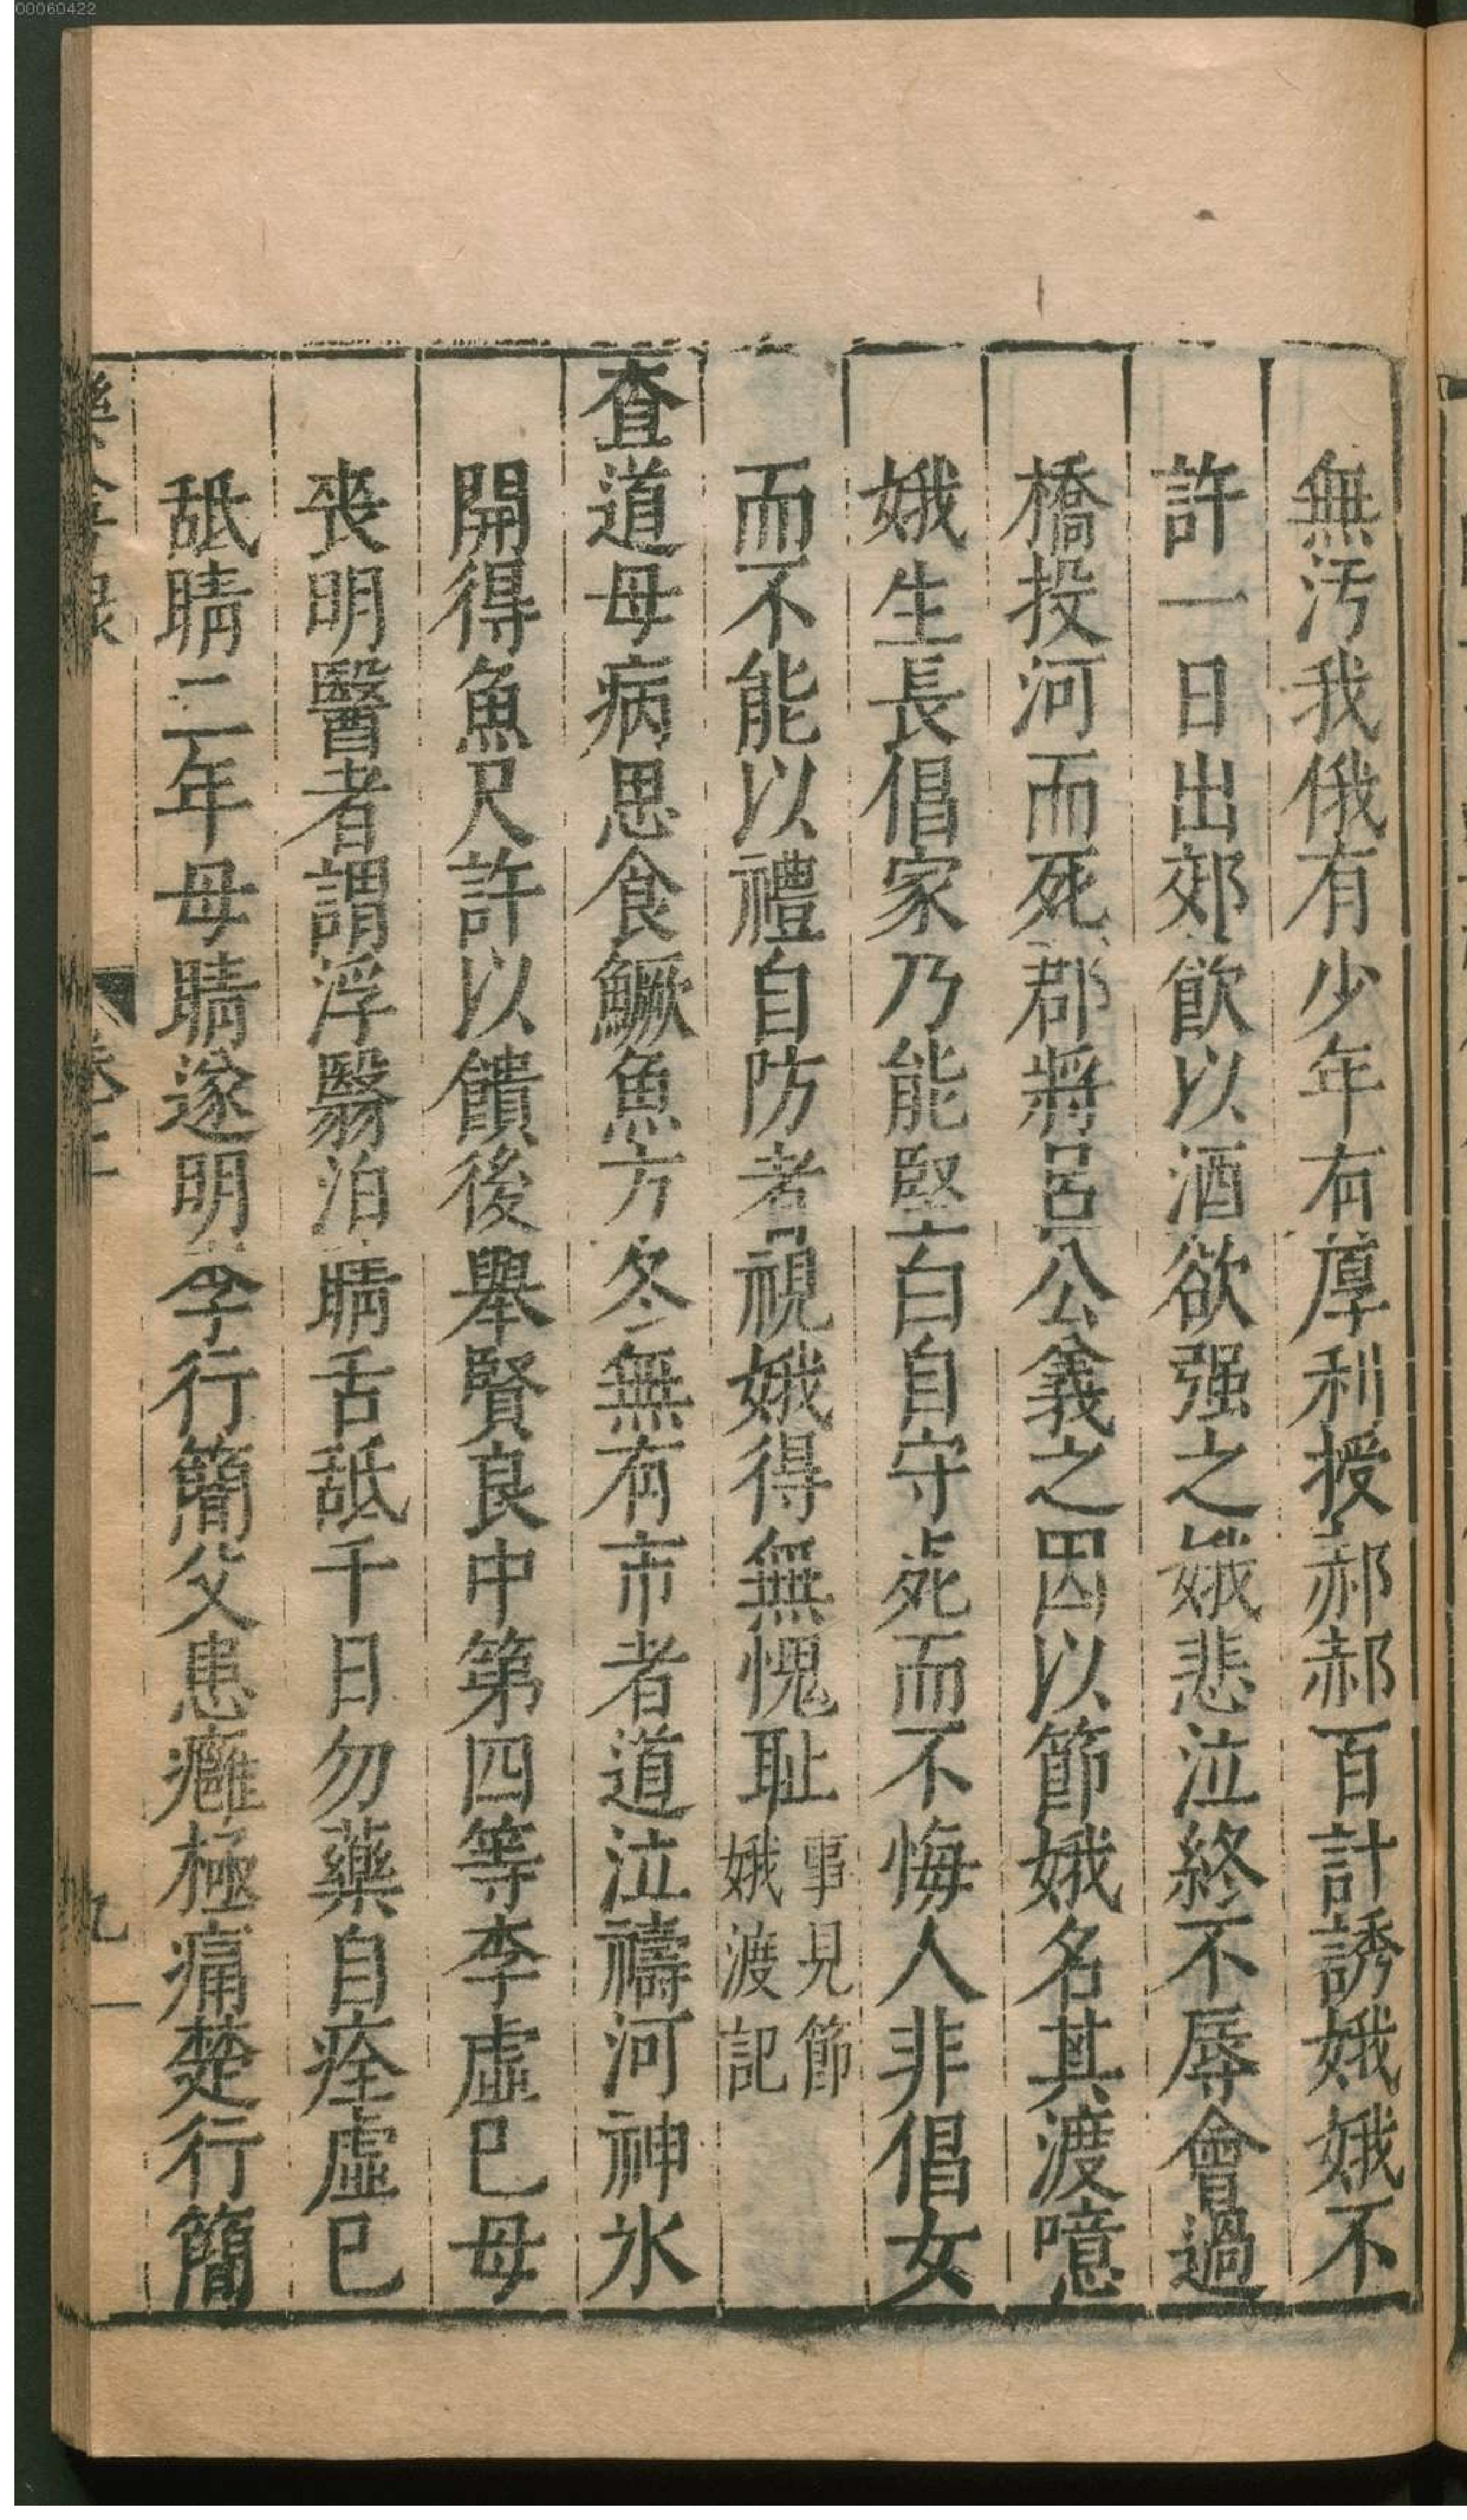 00060422
無汚我俄有少年有厚利授郝郝百計誘娥娥不
許一日出郊飲以酒欲强之娥悲泣終不辱會過
橋投河而死郡將呂公義之因以節娥名其渡噫
娥生長倡家乃能堅白自守死而不悔人非倡女
而不能以禮自防者視娥得無愧耻事見節娥渡記
查道母病思食鱖魚方冬無有市者道泣禱河神氷
開得魚尺許以饋後舉賢良中第四等李虛已母
喪明醫者謂浮翳泊睛舌舐千日勿藥自痊虛已
舐睛二年母睛遂明李行簡父患癰極痛楚行簡
樂善録 卷上 九